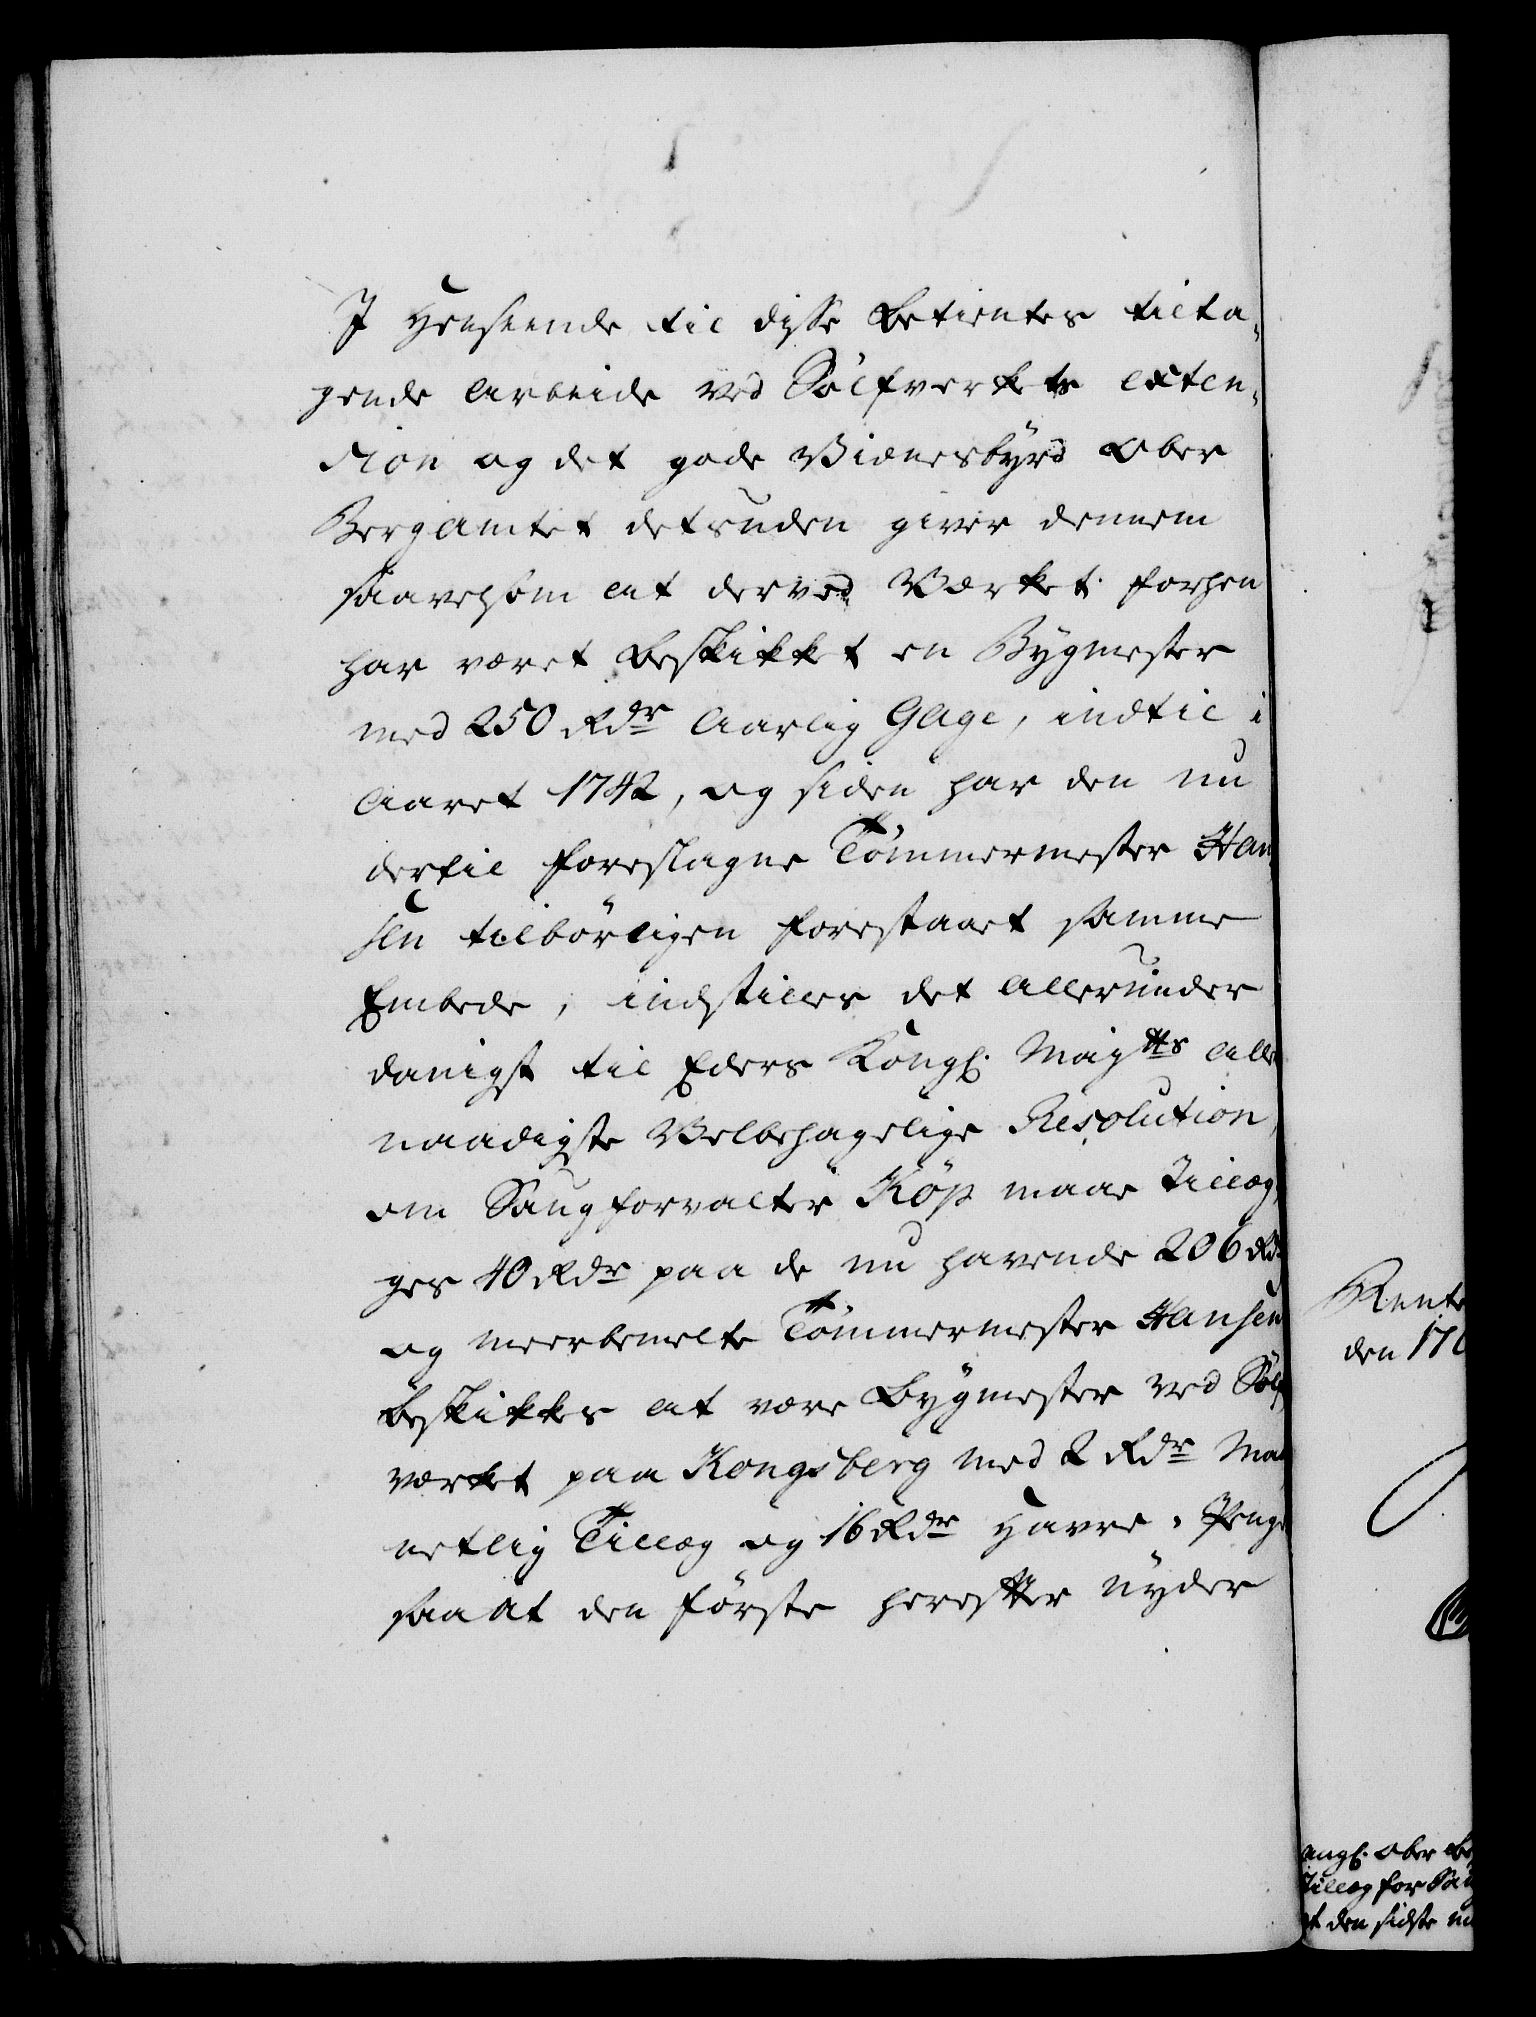 I Henseende til disse Betientes tilta-
gende Arbeide ved Sölfverkets exten-
sion og det gode Vidnesbyrd Ober
Bergamtet desuden giver dennem
saavelsom at der ved Værket forhen
har været beskikket en Bygmester
med 250 Rdr Aarlig Gage, indtil i
Aaret 1742, og siden har den nu
dertil foreslagne Tömmermester Han
sen tilbörligen forestaaet samme
Embede, indstilles det allerunder
danigst til Eders Kongl. Maytts aller
naadigste Velbehagelige Resolution,
om Saugforvalter Köp maae Tillæg,
ges 40 Rdr paa de nu havende 206 Rdr
og meerbemelte Tömmermester Hansen
beskikkes at være Bygmester ved Sölf
værket paa Kongsberg med 2 Rdr Ma
netlig Tillæg og 16 Rdr Havre-Penge
saa at den förste herefter nyder
Rente
den 176
ongl. Ober Be
Tillæg for Sau
at den sidste nu